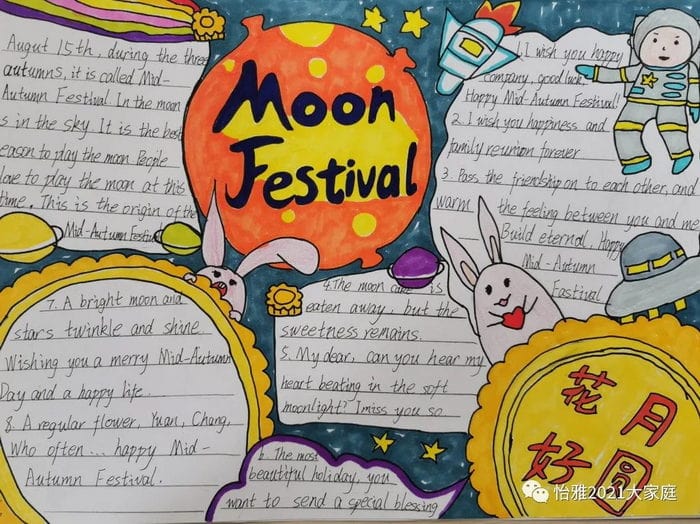 Moon
Festival
Augut 15th, during the three
autumns, it is called Mid-
Autumn Festival. In the moon
is in the sky. It is the best
eason to play the moon. People
love to play the moon at this
time. This is the origin of the
Mid-Autumn Festival
1. I wish you happy
company, good luck,
Happy Mid-Autumn Festival!
2. I wish you happiness and
family reunion forever
3. Pass the friendship on to each other, and
warm the feeling between you and me
Build eternal, Happy
Mid-Autumn
Fastival
4. The moon cake is
eaten away, but the
sweetness remains.
5. My dear, can you hear my
heart beating in the soft
moonlight? I miss you so
6. The most
beautiful holiday, you
want to send a special blessing
7. A bright moon and
stars twinkle and shine
Wishing you a merry Mid-Autumn
Day and a happy life.
8. A regular flower, Yuan, Chang,
Who often... happy Mid-
Autumn Festival.
花月
好圆
怡雅2021大家庭